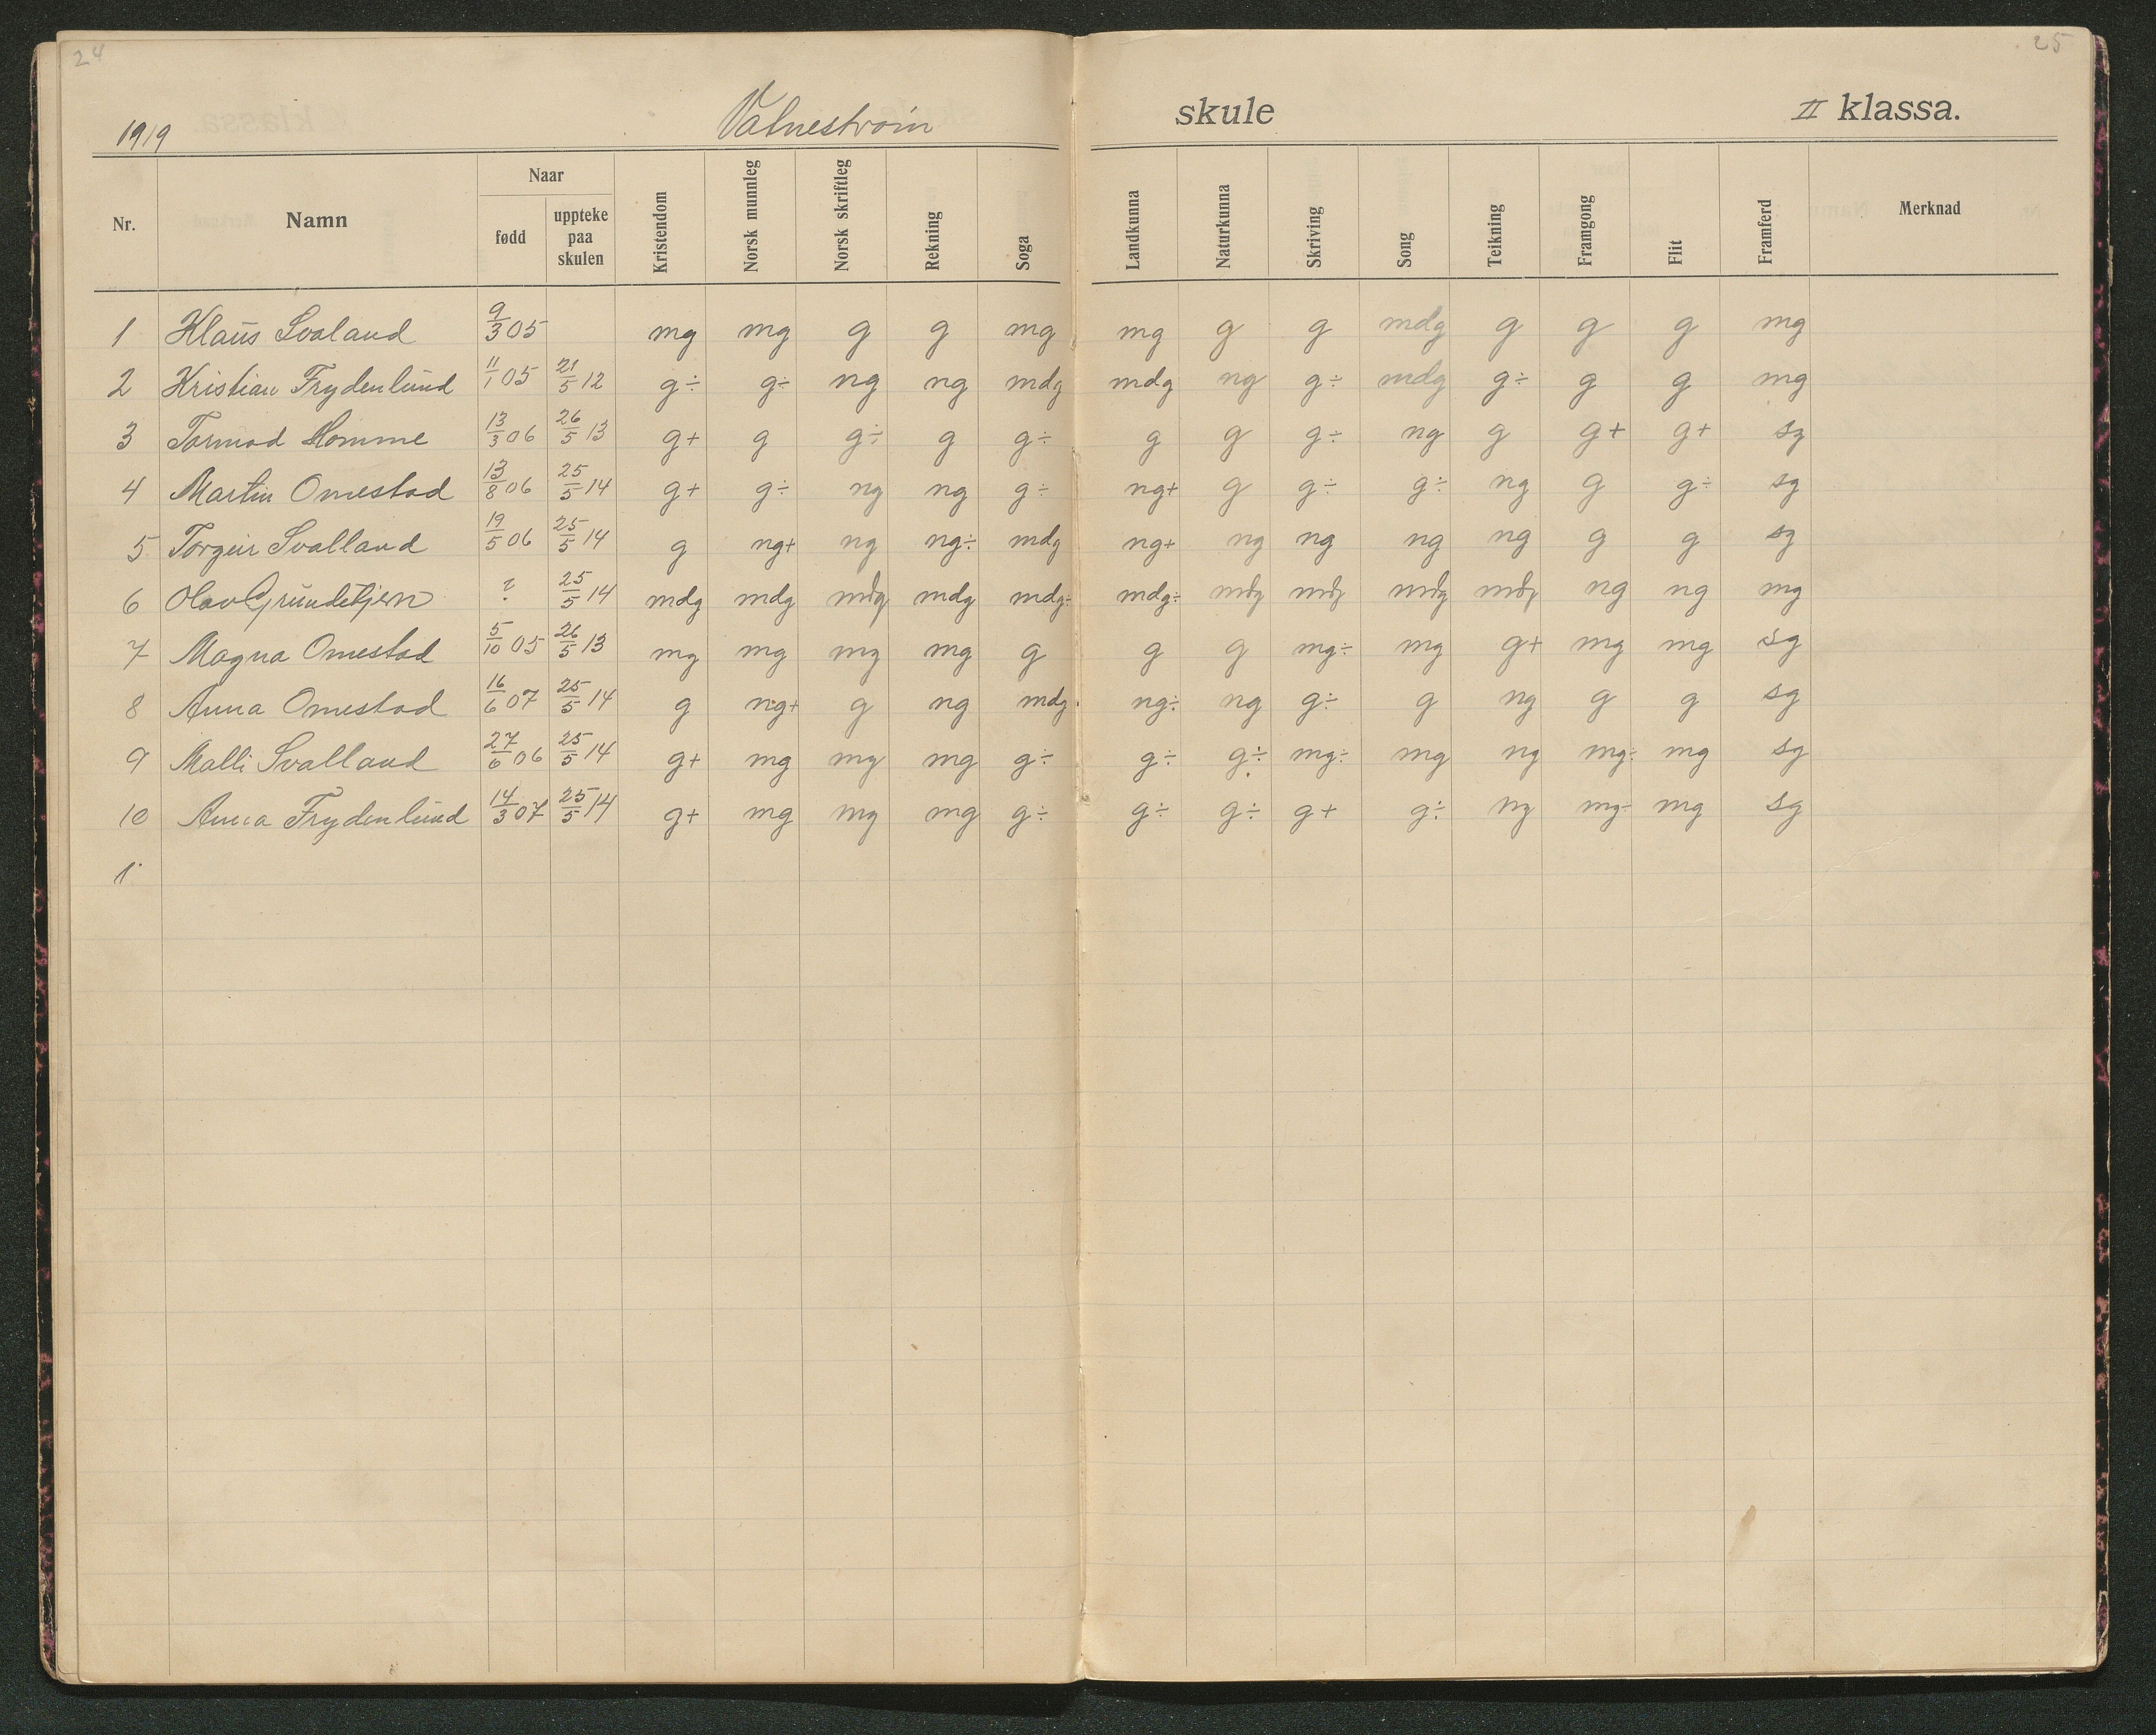 24
25
1919 Vatnestrøm skule II klassa.
Nr. Namn Naar fødd uppteke paa skulen Kristendom Norsk munnleg Norsk skriftleg Rekning Soga Landkunna Naturkunna Skriving Song Teikning Framgong Flit Framferd Merknad
1 Klaus Svaland 9/3 05 mg mg g g mg mg g g mdg g g g mg
2 Kristian Frydenlund 11/1 05 21/5 12 g÷ g÷ ng ng mdg mdg ng g÷ mdg g÷ g g mg
3 Tormod Homme 13/3 06 26/5 13 g+ g g÷ g g÷ g g g÷ ng g g+ g+ sg
4 Martin Omestad 13/8 06 25/5 14 g+ g÷ ng ng g÷ ng+ g g÷ g÷ ng g g÷ sg
5 Torgeir Svalland 19/5 06 25/5 14 g ng+ ng ng÷ mdg ng+ ng ng ng ng g g sg
6 Olav Grundetjern ? 25/5 14 mdg mdg mdg mdg mdg÷ mdg÷ mdg mdg mdg mdg ng ng mg
7 Magna Omestad 5/10 05 26/5 13 mg mg mg mg g g g mg÷ mg g+ mg mg sg
8 Anna Omestad 16/6 07 25/5 14 g ng+ g ng mdg ng÷ ng g÷ g ng g g sg
9 Malli Svalland 27/6 06 25/5 14 g+ mg mg mg g÷ g÷ g÷ mg÷ mg ng mg÷ mg sg
10 Anna Frydenlund 14/3 07 25/5 14 g+ mg mg mg g÷ g÷ g÷ g+ g÷ ng mg÷ mg sg
1